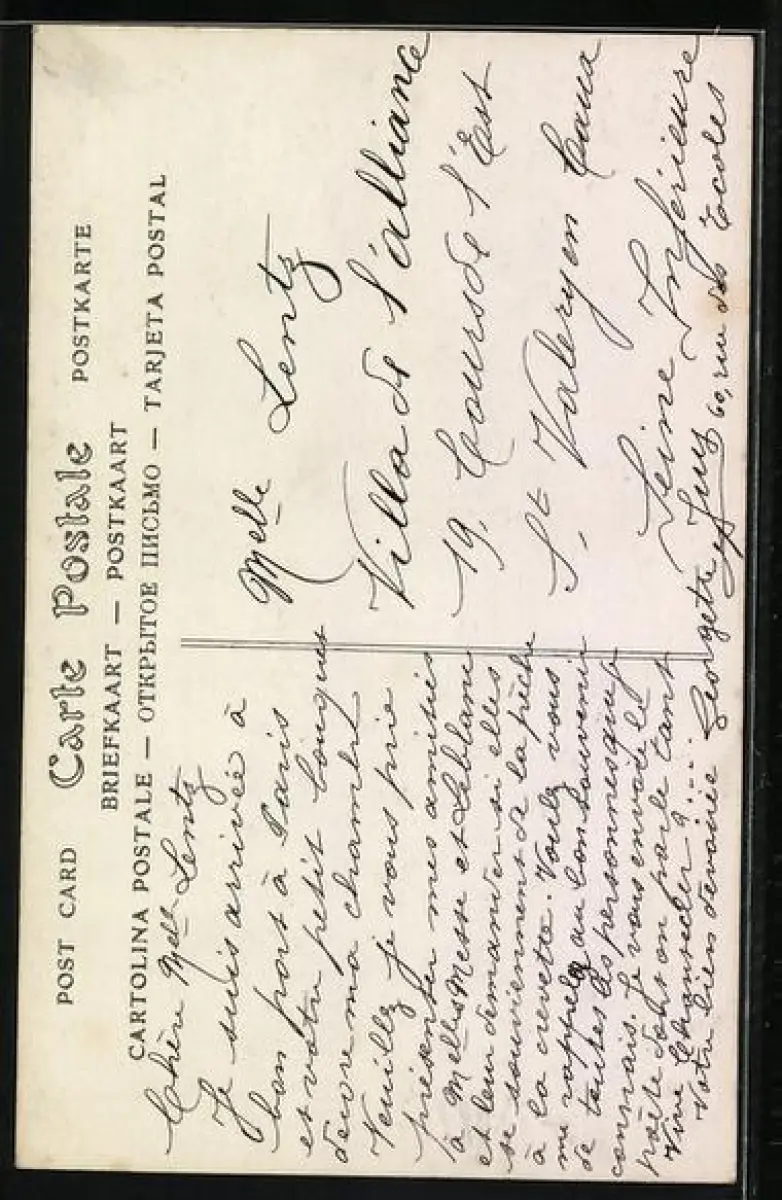 POST CARD Carte Postale POSTKARTE
BRIEFKAART — POSTKAART
CARTOLINA POSTALE — ОТКРЫТОЕ ПИСЬМО — TARJETA POSTAL
Chère Melle Lentz
Je suis arrivée à
bon port à Paris
et votre petit bouquet
décore ma chambre
Veuillez je vous prie
présenter mes amitiés
à Melles Messe et Leblanc
et leur demander si elles
se souviennent de la pêche
à la crevette. Voulez vous
me rappeler au bon souvenir
de toutes les personnes que je
connais. Je vous envoie le
poète dont on parle tant
Vive Chantecler ?....
Votre bien dévouée Georgette 60, rue des Ecoles
Melle Lentz
Villa de l'alliance
19, Cours de l'Est
St Valery en Caux
Seine Inférieure